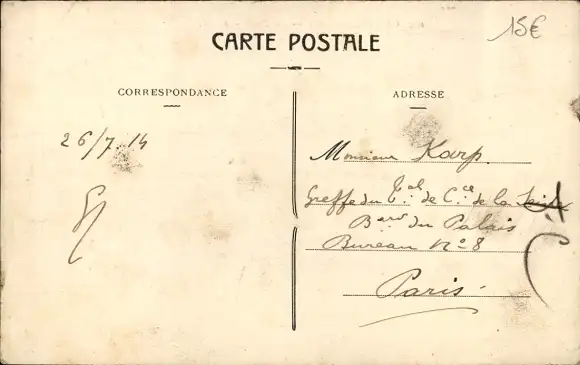 15€
CARTE POSTALE
CORRESPONDANCE
ADRESSE
26/7.14
Monsieur Karp.
Greffe du Tal. de Cce. de la Seine
Bard du Palais
Bureau No 8
Paris